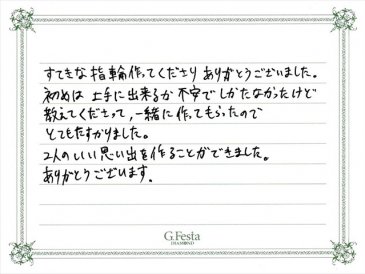 すてきな指輪作ってくださり ありがとうございました。
初めは 上手に出来るか 不安で しかたなかったけど
教えてくださって、一緒に作ってもらったので
とてもたすかりました。
2人のいい思い出を作ることができました。
ありがとうございます.
G.Festa
DIAMOND